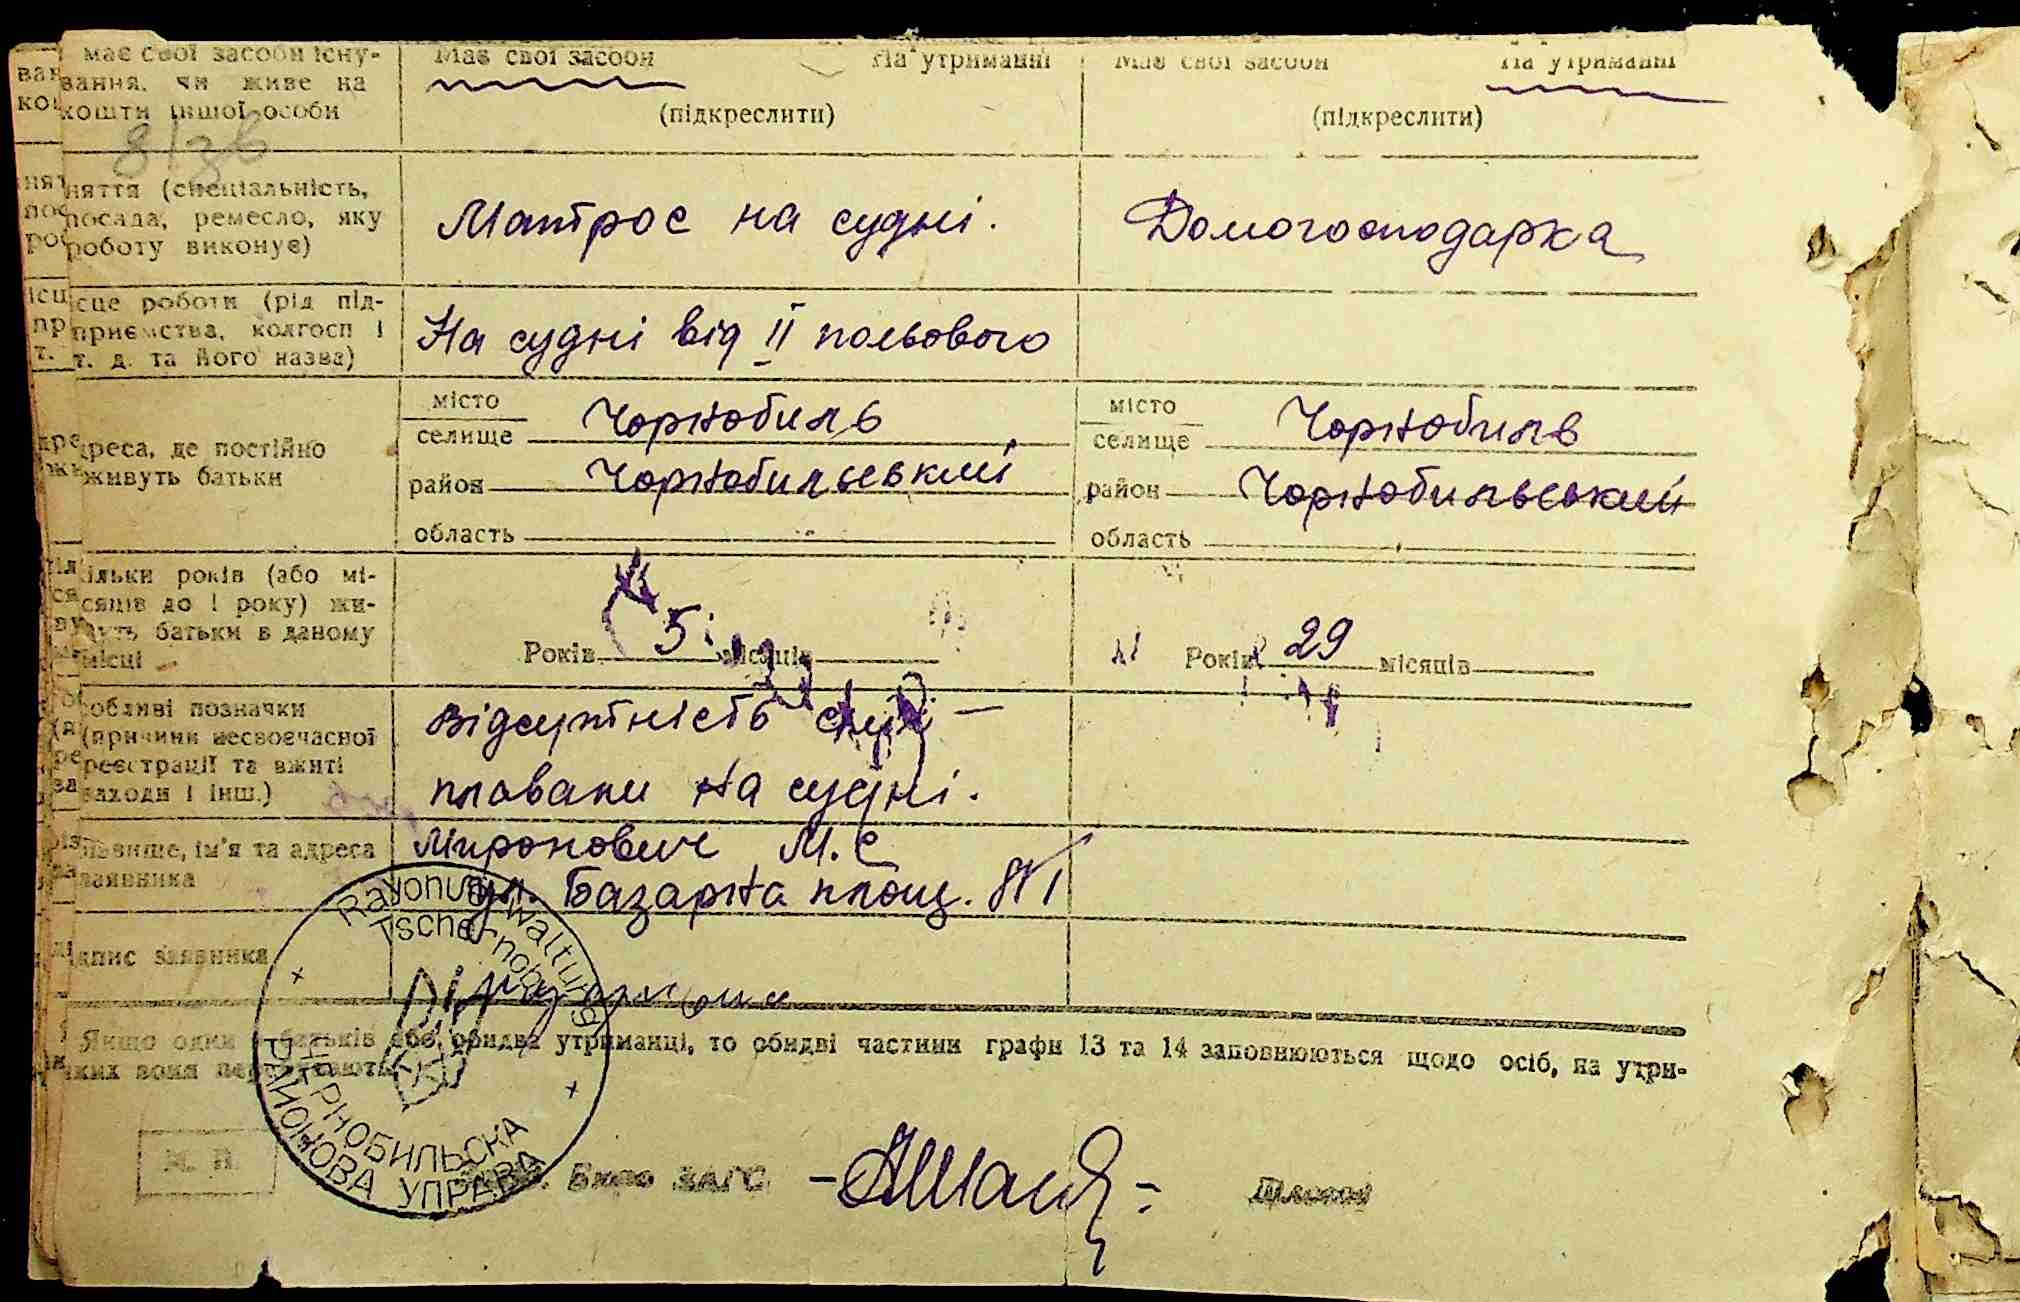 має свої засоби існування, чи живе на кошти іншої особи
Має свої засоби На утриманні
(підкреслити)
Має свої засоби На утриманні
(підкреслити)
няття (спеціальність,
посада, ремесло, яку
роботу виконує)
Матрос на судні.
Домогосподарка
ісце роботи (рід під-
приємства, колгосп і
т. д. та його назва)
На судні від ІІ польового
дреса, де постійно
живуть батьки
місто
селище Чорнобиль
район Чорнобильський
область
місто
селище Чорнобиль
район Чорнобильський
область
ільки років (або мі-
сяців до 1 року) жи-
вуть батьки в даному
місці
Років 5 місяців
Років 29 місяців
обливі позначки
(причини несвоєчасної
реєстрації та вжиті
заходи і інш.)
Відсутність
на судні.
ім'я та адреса
заявника
Миронович М. С
ул. Базарна площ.
дпис заявника
Якщо один батьків або обидва утриманці, то обидві частини графи 13 та 14 заповнюються щодо осіб, на утри-
яких вони
Rayonverwaltung
Tschernobyl
ЧЕРНОБИЛЬСКА
РАЙОНОВА УПРАВА
М. П.
Бюро ЗАГС